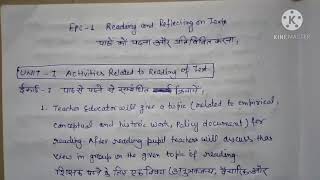 EPC-1 Reading and Reflecting on Texts
पाठों को पढ़ना और प्रतिबिंबित करना,
UNIT-I Activities Related to Reading of Text
ईकाई-I पाठ से पढ़ने से सम्बंधित क्रियायें,
1. Teacher Educator will give a topic (related to empirical,
conceptual and historic work, policy document) for
reading. After reading pupil teachers will discuss their
views in group on the given topic of reading.
शिक्षक पढ़ने के लिए एक विषय और
KINEMASTER